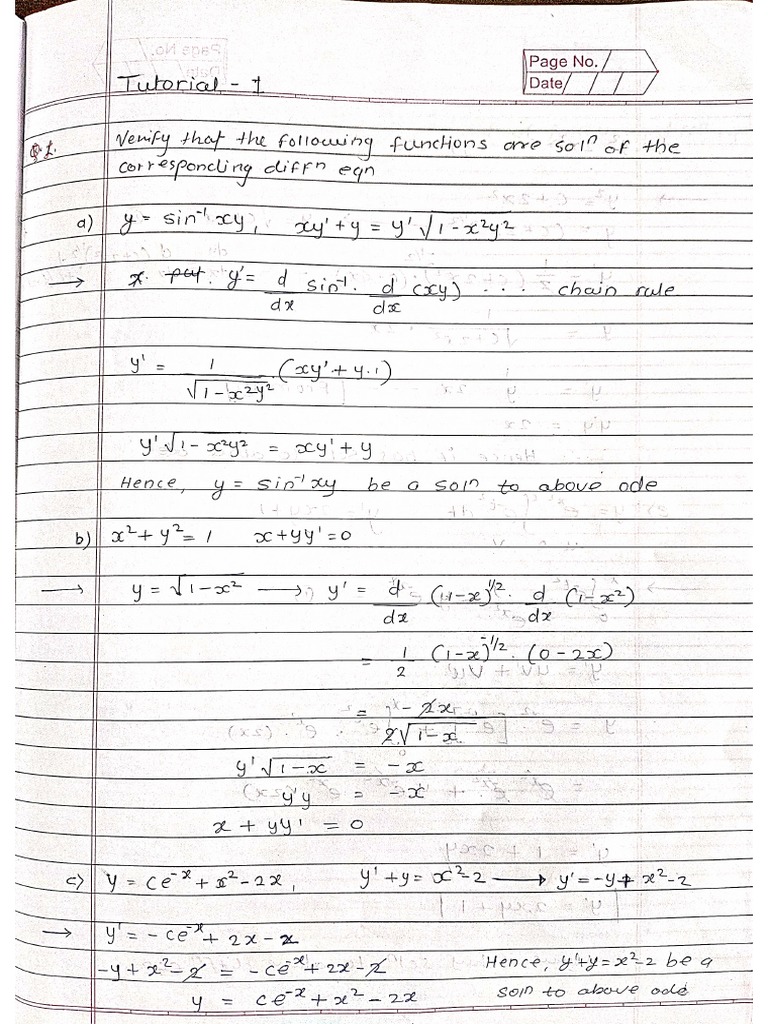 Page No.
Date
Tutorial - 1
Q.1. Verify that the following functions are solⁿ of the
corresponding diffⁿ eqn
a) y = sin⁻¹ xy, xy' + y = y' √1-x²y²
→ x. put. y' = d/dx sin⁻¹. d/dx (xy) ... chain rule
y' = 1/√1-x²y² (xy' + y.1)
y' √1-x²y² = xy' + y
Hence, y = sin⁻¹ xy be a solⁿ to above ode
b) x² + y² = 1 x + yy' = 0
→ y = √1-x² → y' = d/dx (1-x)^1/2. d/dx (1-x²)
= 1/2 (1-x)^-1/2. (0-2x)
= -2x/2√1-x
y' √1-x = -x
y'y = -x
x + yy' = 0
c) y = ce⁻ˣ + x² - 2x, y' + y = x² - 2 → y' = -y + x² - 2
→ y' = -ce⁻ˣ + 2x - 2
-y + x² - 2 = -ce⁻ˣ + 2x - 2 Hence, y' + y = x² - 2 be a
y = ce⁻ˣ + x² - 2x solⁿ to above ode